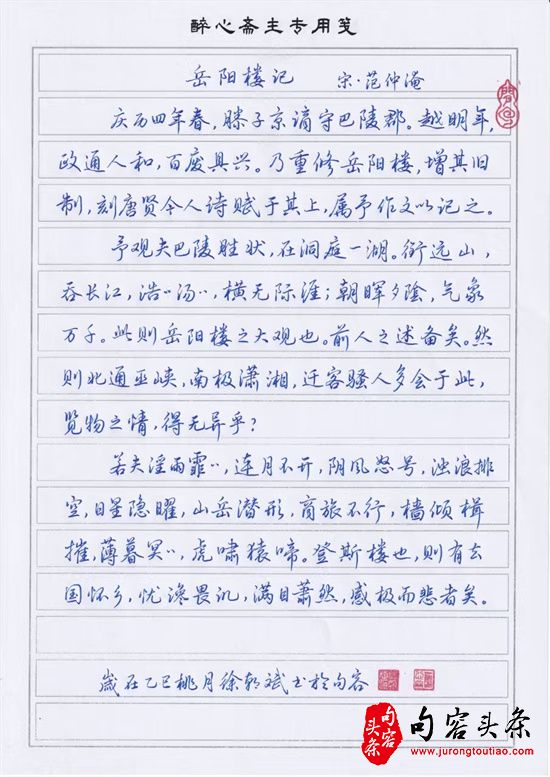 醉心斋主专用笺
岳阳楼记 宋·范仲淹
庆历四年春，滕子京谪守巴陵郡。越明年，
政通人和，百废具兴。乃重修岳阳楼，增其旧
制，刻唐贤今人诗赋于其上，属予作文以记之。
予观夫巴陵胜状，在洞庭一湖。衔远山，
吞长江，浩〃汤〃，横无际涯；朝晖夕陰，气象
万千。此则岳阳楼之大观也。前人之述备矣。然
则北通巫峡，南极潇湘，迁客骚人多会于此，
览物之情，得无异乎？
若夫淫雨霏〃，连月不开，阴风怒号，浊浪排
空，日星隐曜，山岳潜形，商旅不行，樯倾楫
摧，薄暮冥〃，虎啸猿啼。登斯楼也，则有去
国怀乡，忧谗畏讥，满目萧然，感极而悲者矣。
歲在乙巳桃月徐朝斌书於句容
句容头条
句容头条
www.jurongtoutiao.com